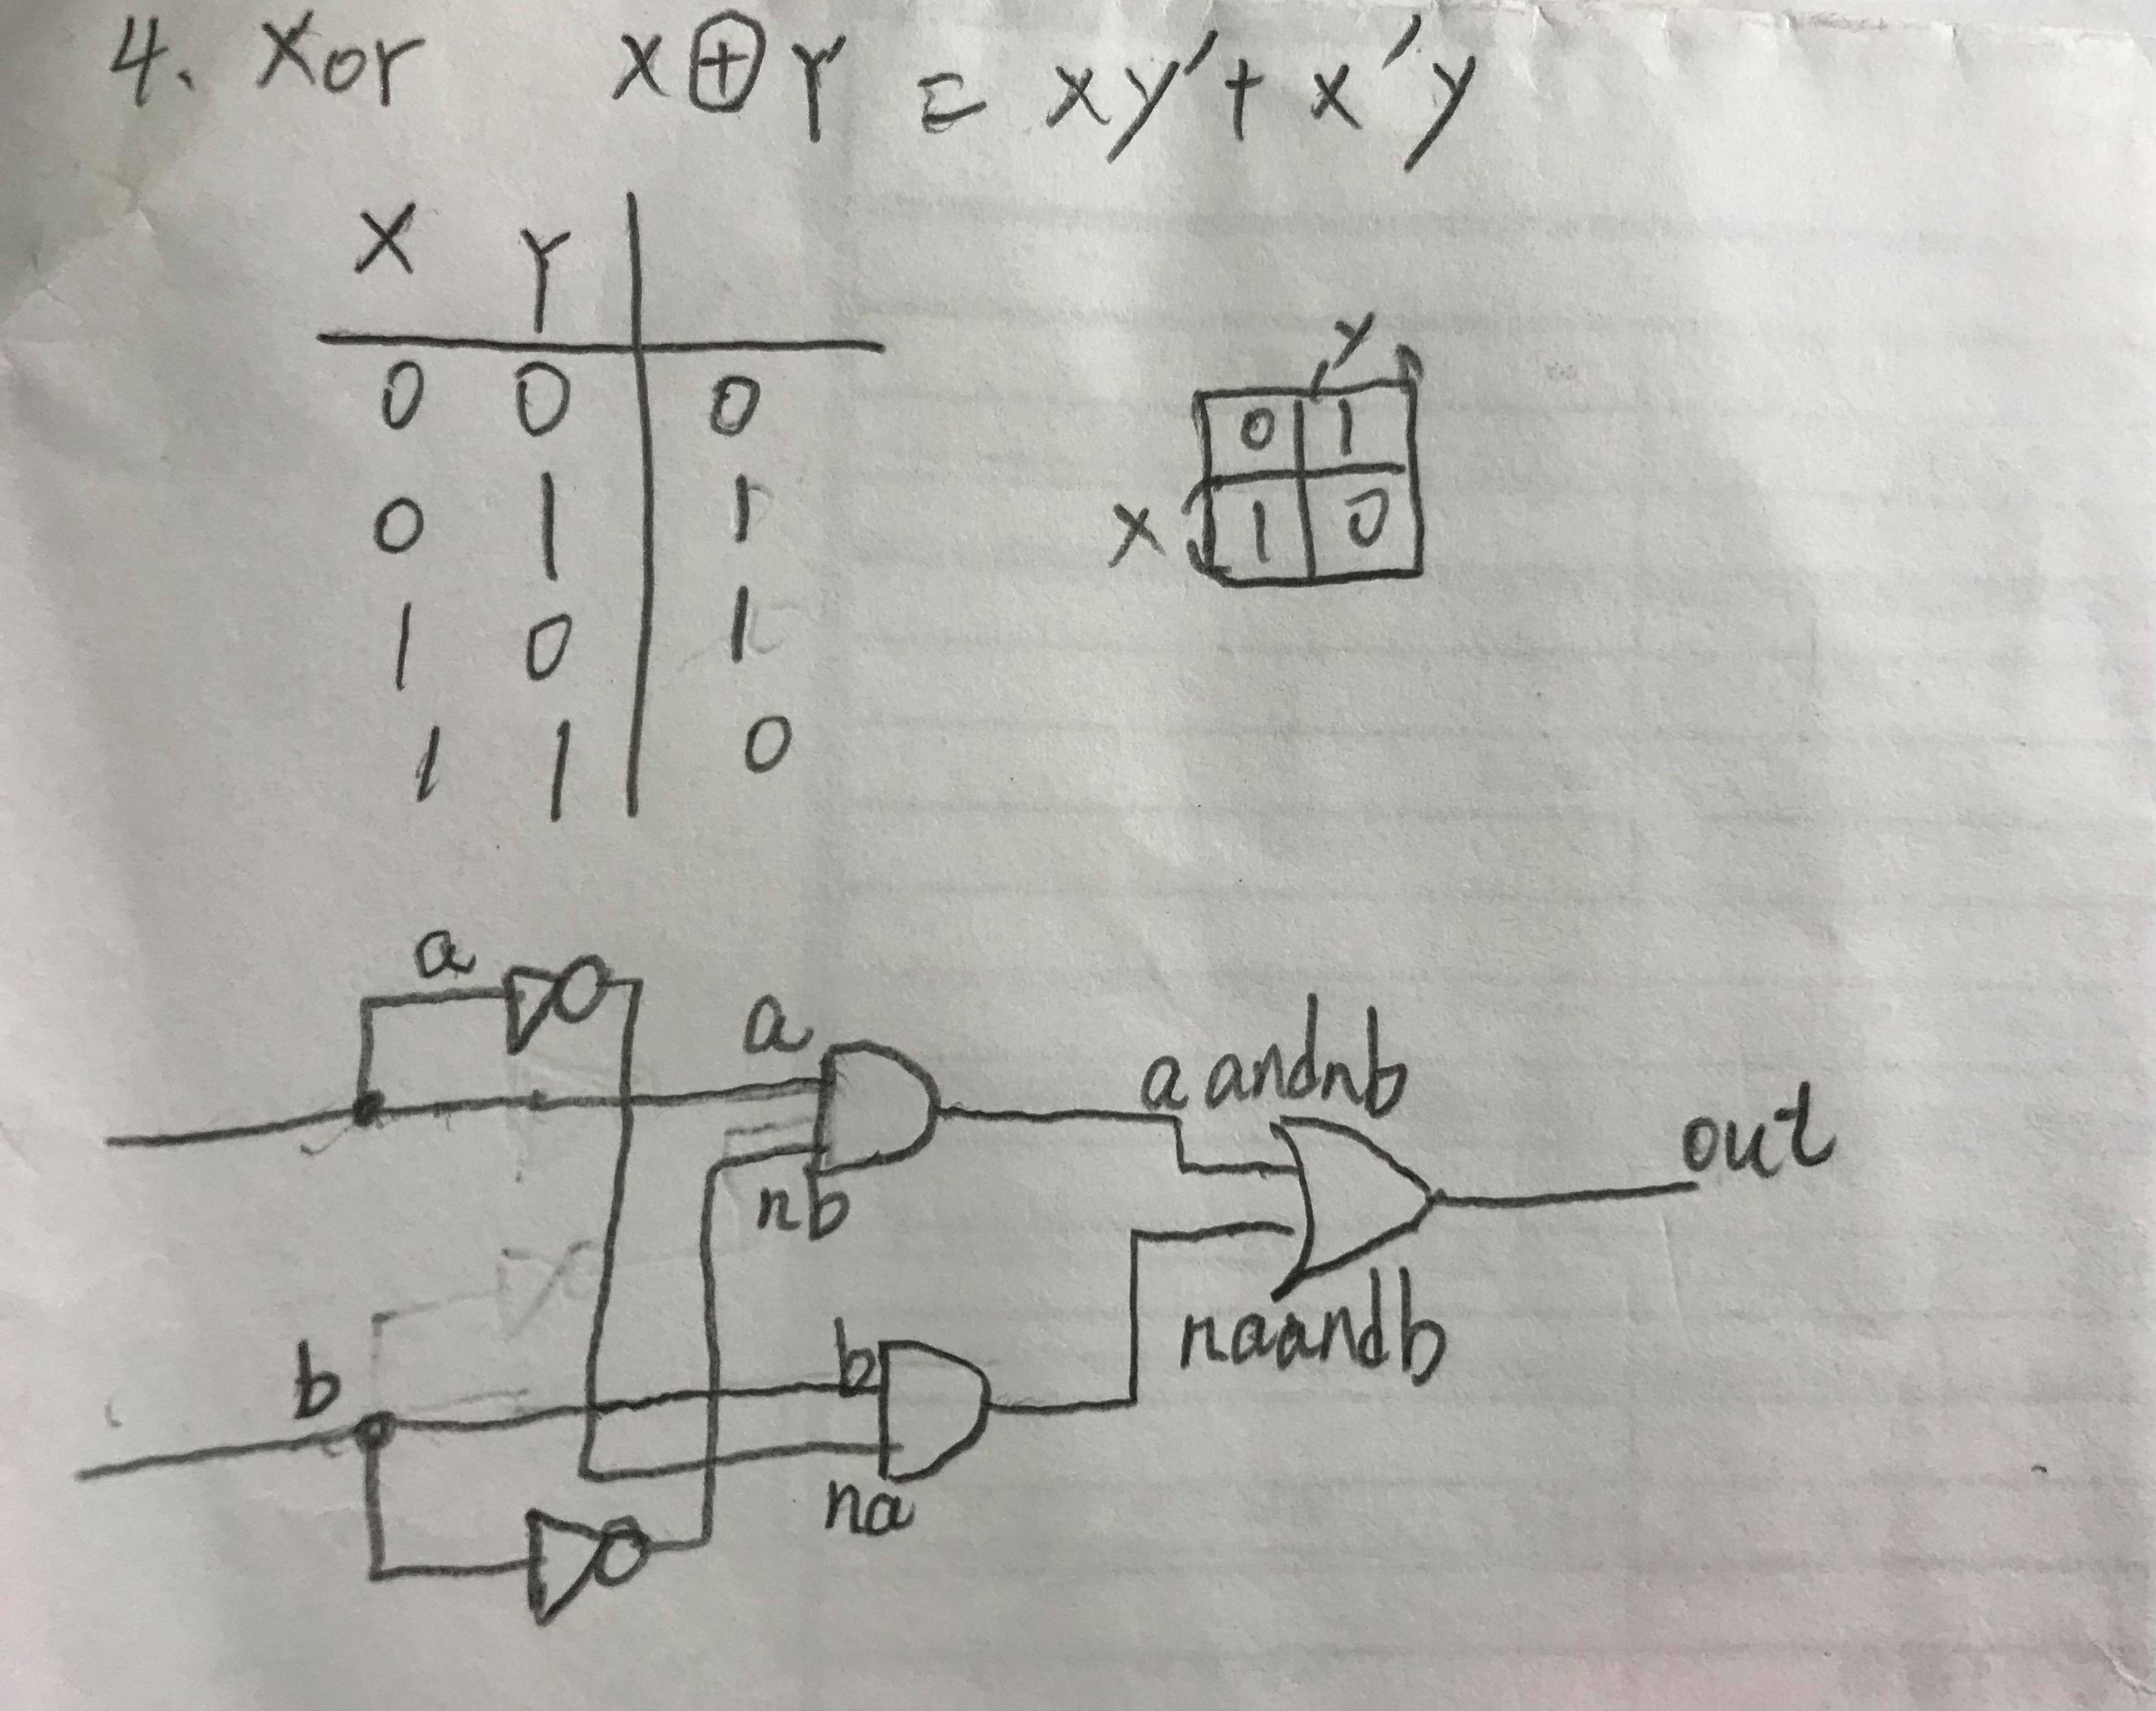 4. Xor X⊕Y = xy' + x'y
X Y
0 0 0
0 1 1
1 0 1
1 1 0
Y
0 1
X 1 0
a
a
aandnb
out
nb
b
b
naandb
na